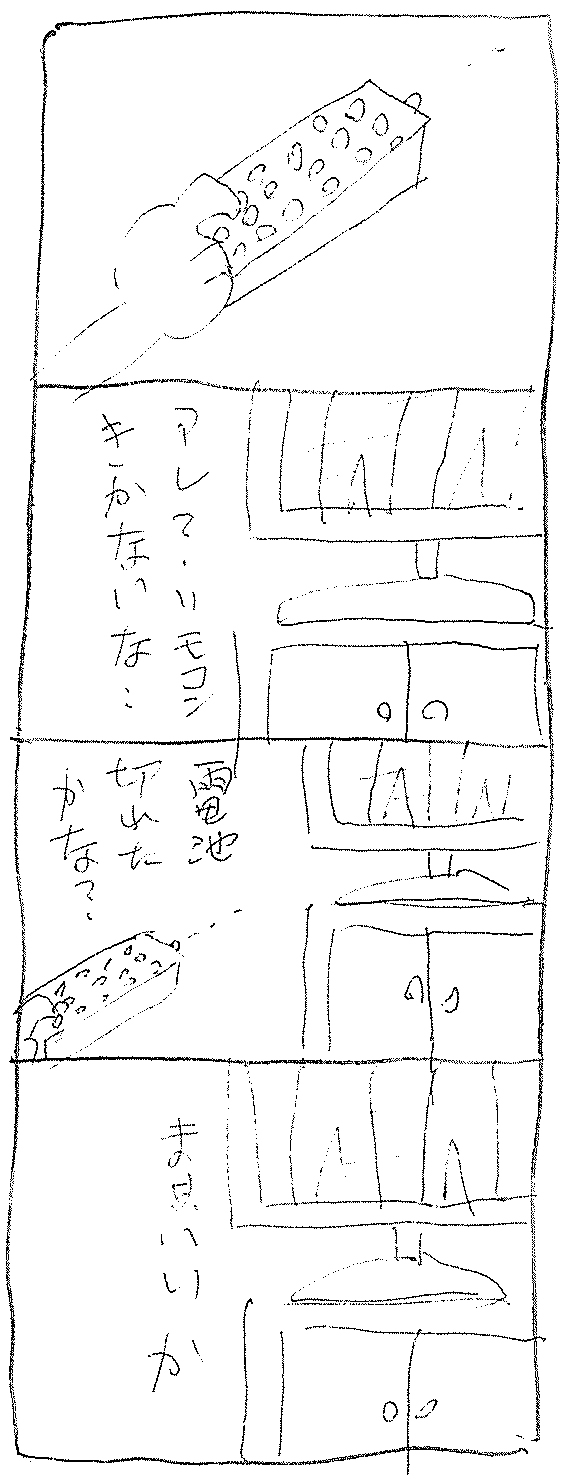 アレ?・リモコン
きかないな:
電池
切れた
かな?・
ま良いか